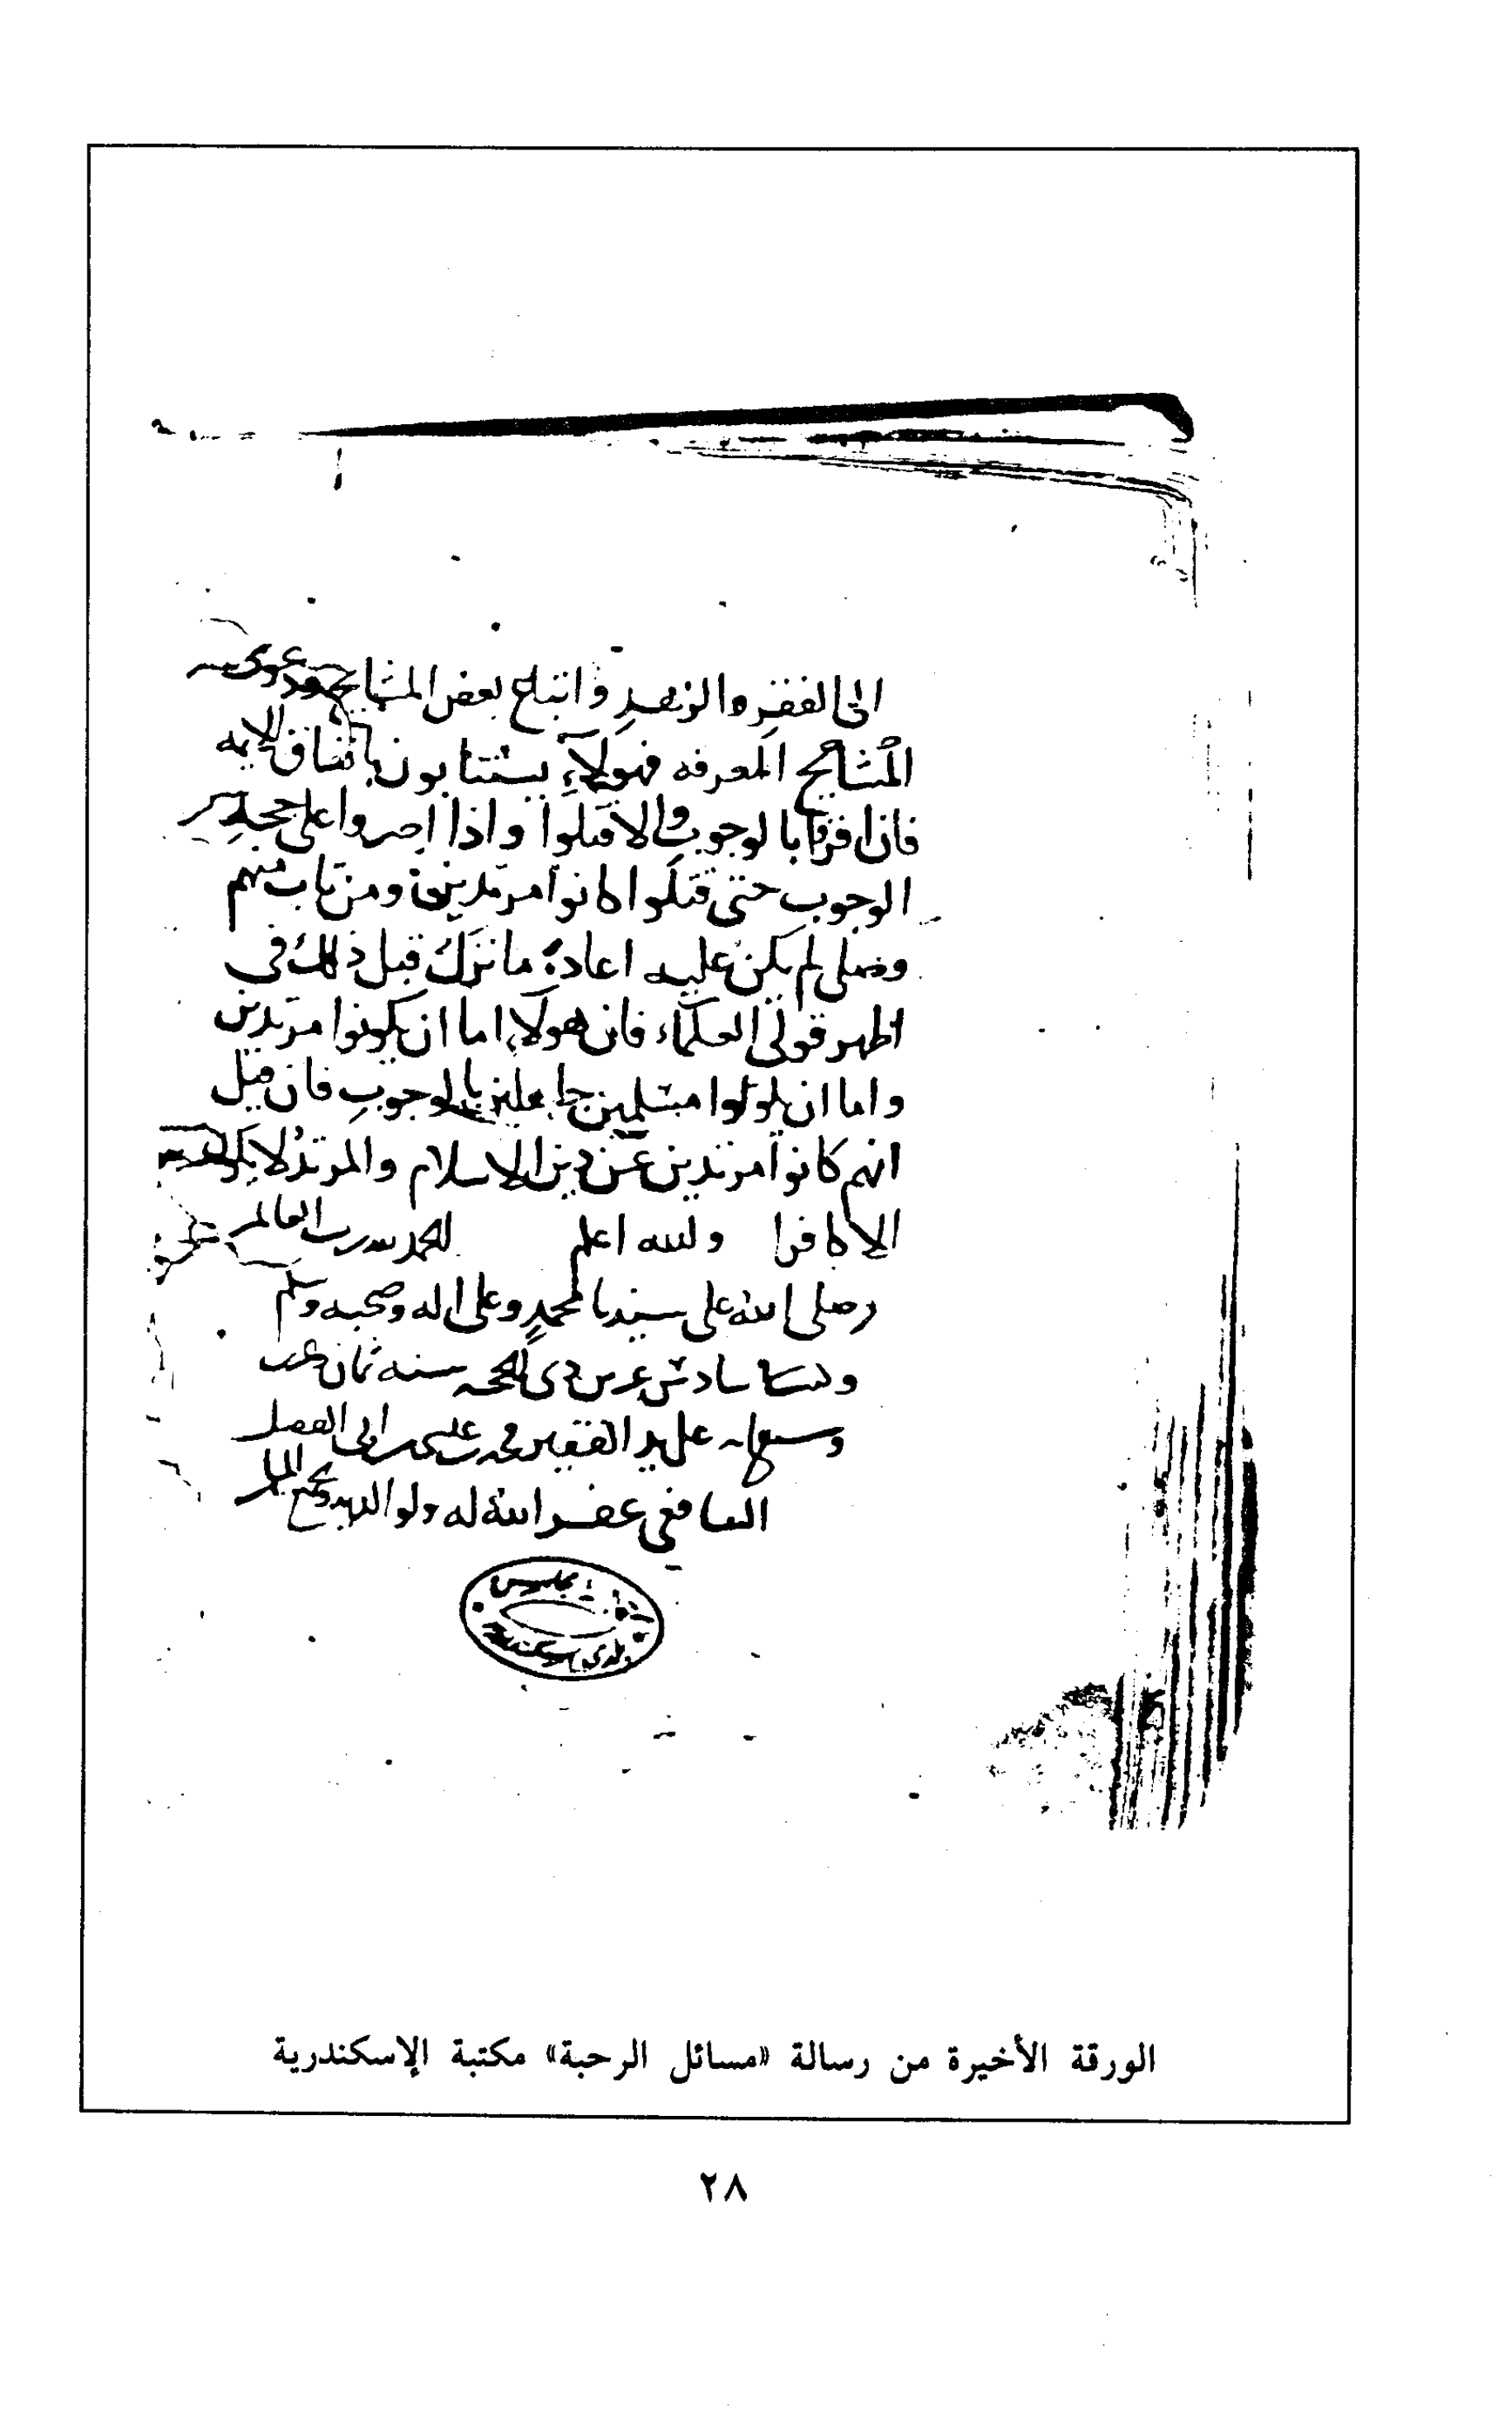 الى الفقر والزهد واتباع بعض المشايخ ودعوى
المشايخ المعرفه فهولآء يستتابون باتفاق الايمه
فان اقروا بالوجوب والا قتلوا واذا اصروا على جحد
الوجوب حتى قتلوا كانوا مرتدين ومن تاب منهم
وصلى لم يكن عليه اعادة ما ترك قبل ذلك في
اظهر قولي العلماء فان هولاء اما ان يكونوا مرتدين
واما ان يكونوا مسلمين جاهلين بالوجوب فان قيل
انهم كانوا مرتدين عن دين الاسلام والمرتد لا
الا كافرا والله اعلم الحمد لله رب العالم
وصلى الله على سيدنا محمد وعلى اله وصحبه وسلم
سادس ذي الحجه سنه ثمان
على يد الفقير ابي الفضل
عفر الله له ولوالديه
مجلس
بلدي اسكندرية
الورقة الأخيرة من رسالة «مسائل الرحبة» مكتبة الإسكندرية
٢٨